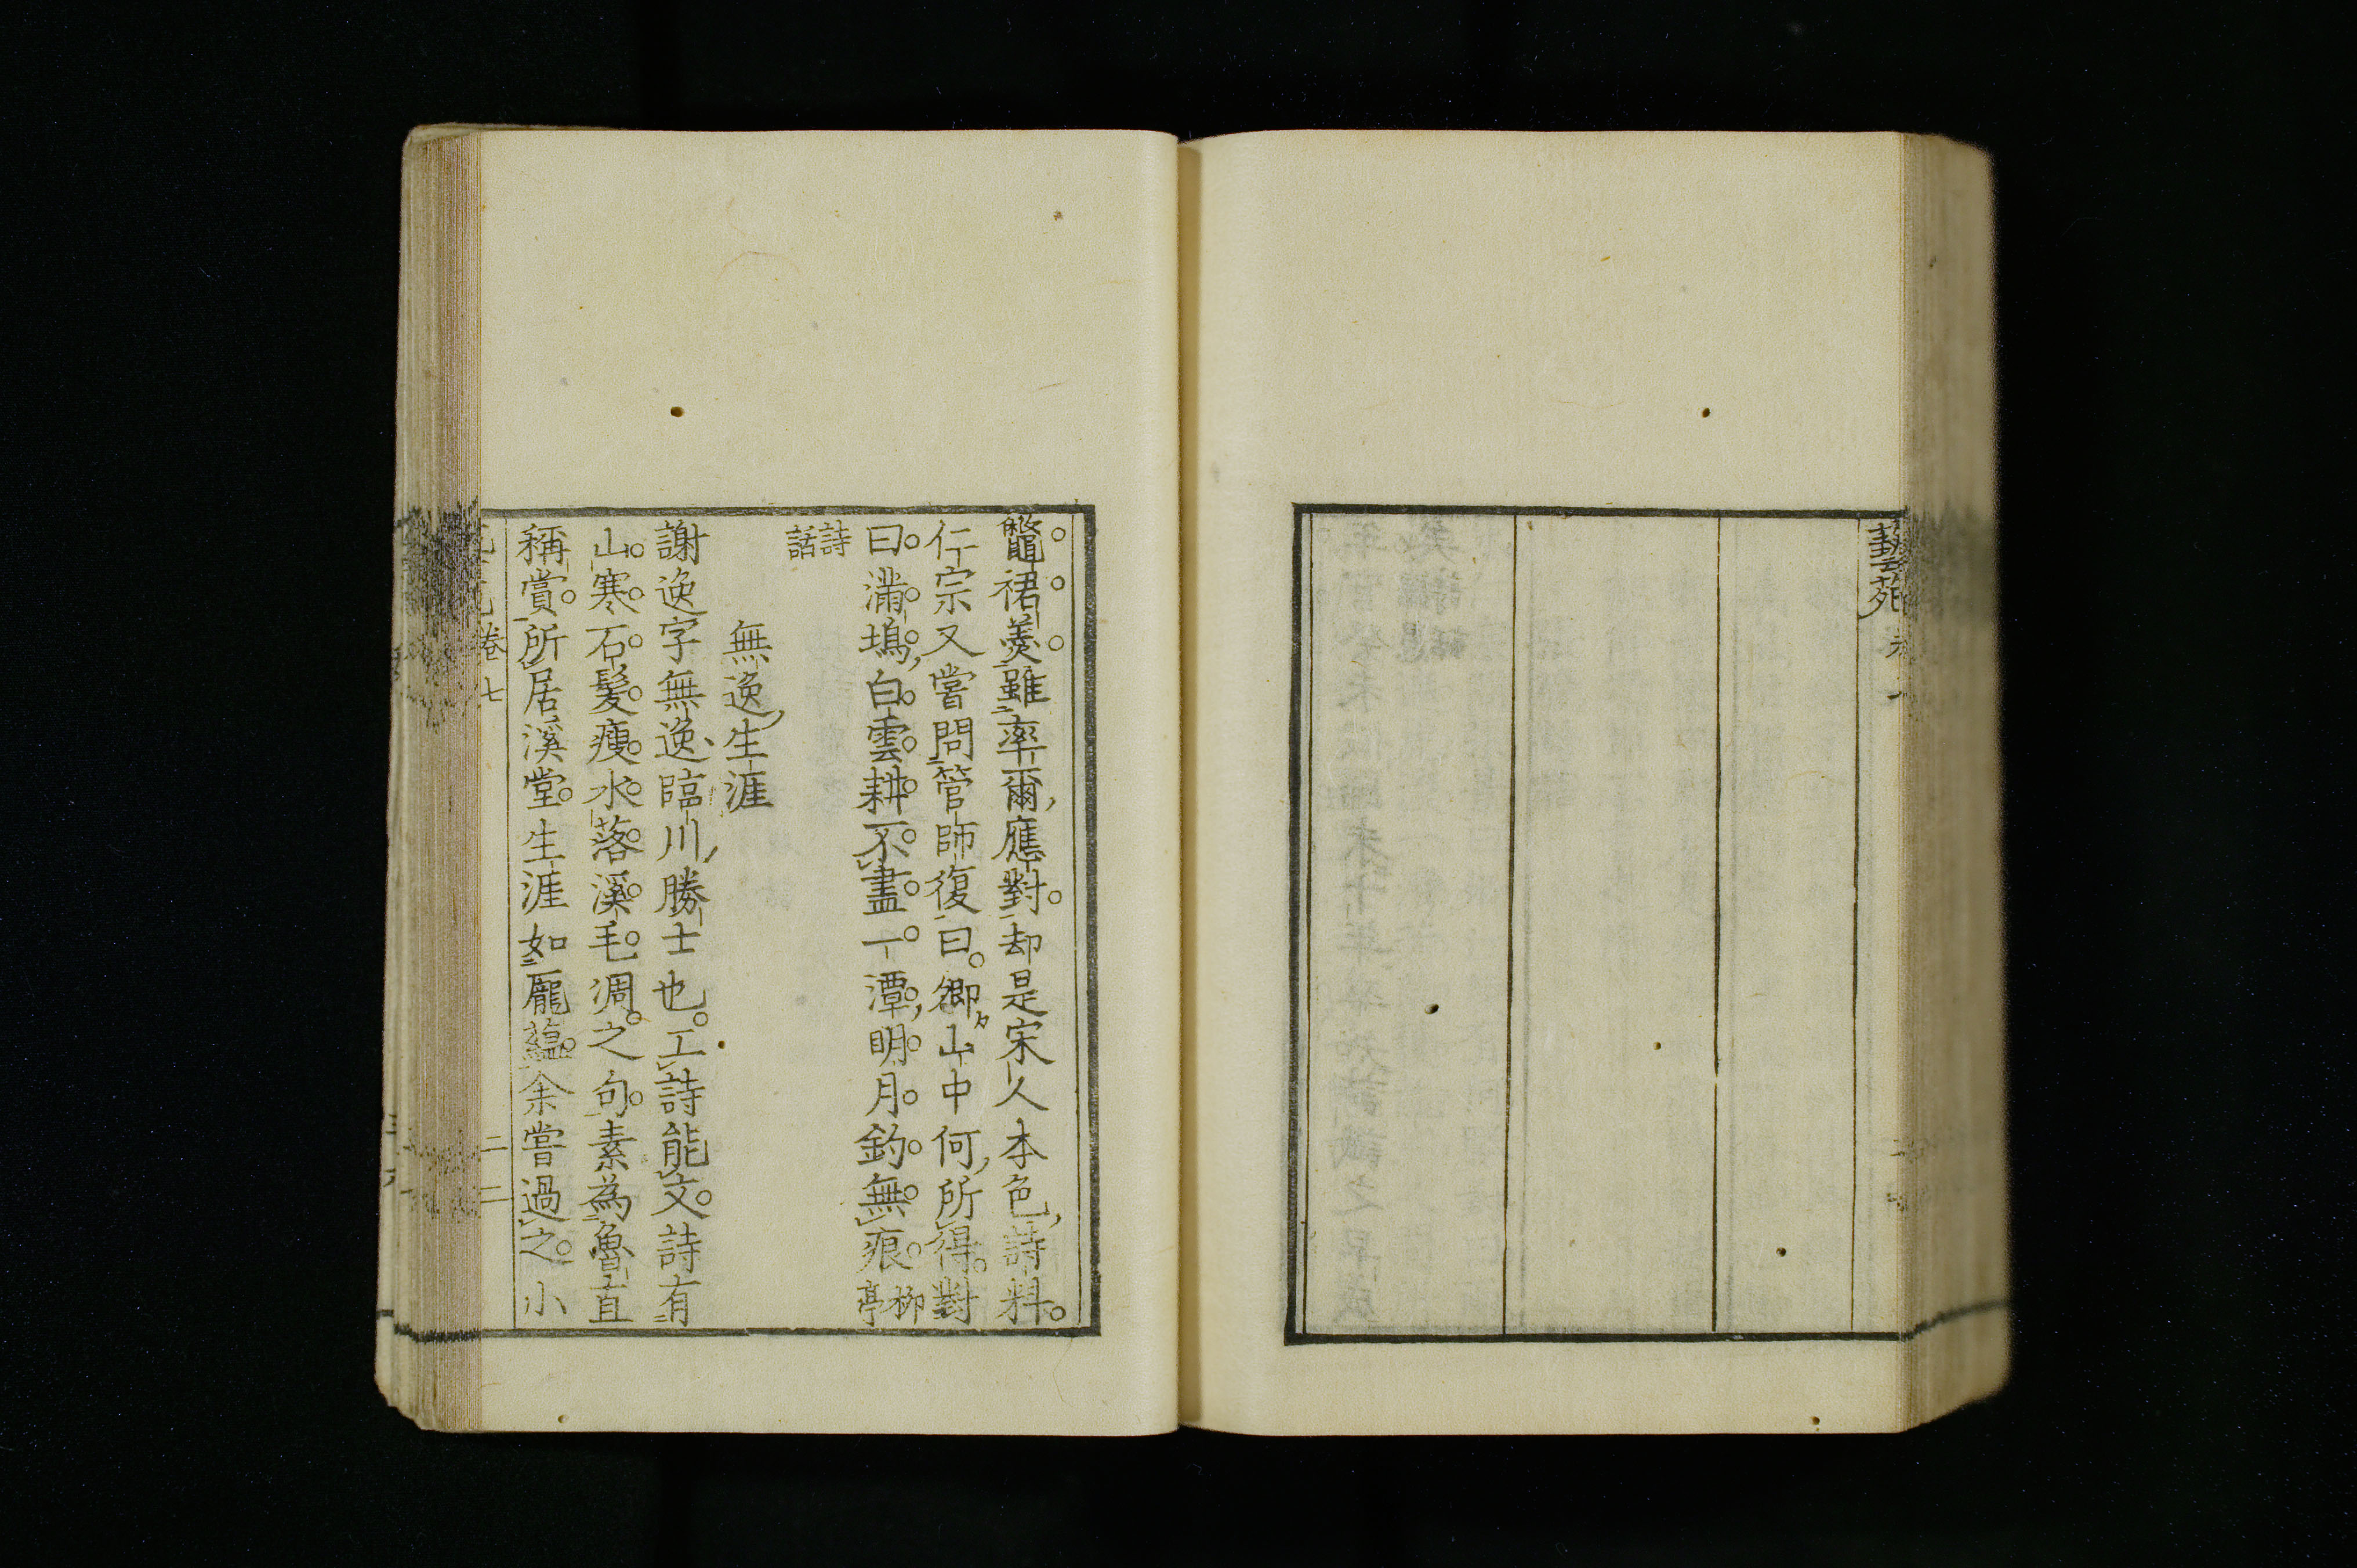 藝苑
鼈裙羮雖率爾應對却是宋人本色詩料
仁宗又嘗問管師復曰卿山中何所得對
曰滿塢白雲耕不盡一潭明月釣無痕柳亭
詩話
無逸生涯
謝逸字無逸臨川勝士也工詩能文詩有
山寒石髪瘦水落溪毛凋之句素為魯直
稱賞所居溪堂生涯如龐蘊余嘗過之小
卷七
二二